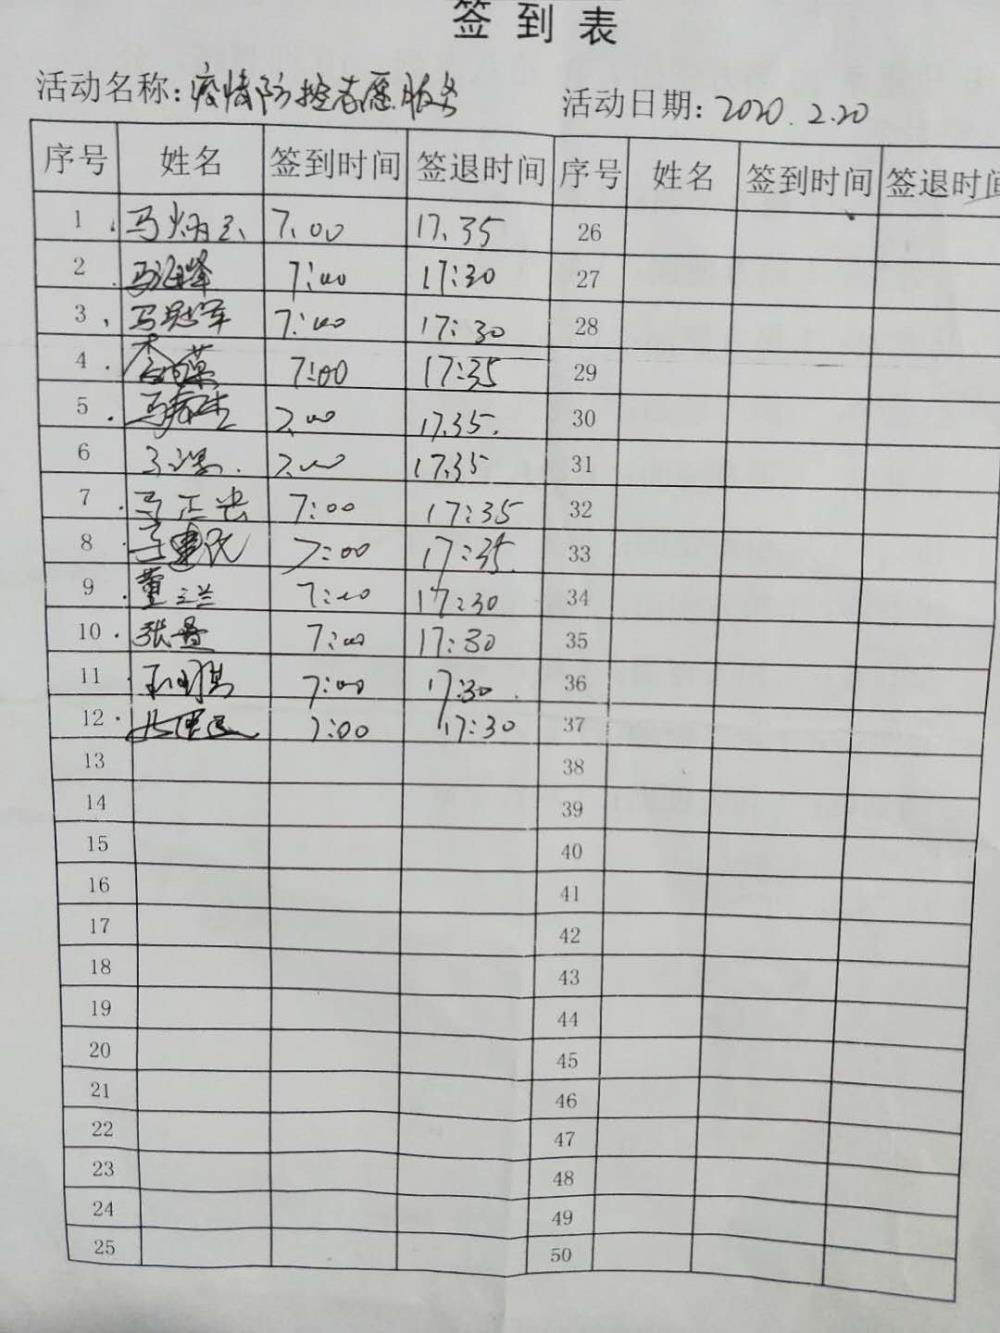 签到表
活动名称：疫情防控志愿服务 活动日期：2020.2.20
序号 姓名 签到时间 签退时间 序号 姓名 签到时间 签退时间
1 7.00 17.35 26
2 7:00 17:30 27
3 马冠军 7:00 17:30 28
4 7:00 17:35 29
5 7.00 17.35. 30
6 7.00 17.35 31
7 马正 7:00 17:35 32
8 7:00 17:35 33
9 董立兰 7:00 17:30 34
10 张 7:00 17:30 35
11 7:00 17:30 36
12 7:00 17:30 37
13 38
14 39
15 40
16 41
17 42
18 43
19 44
20 45
21 46
22 47
23 48
24 49
25 50